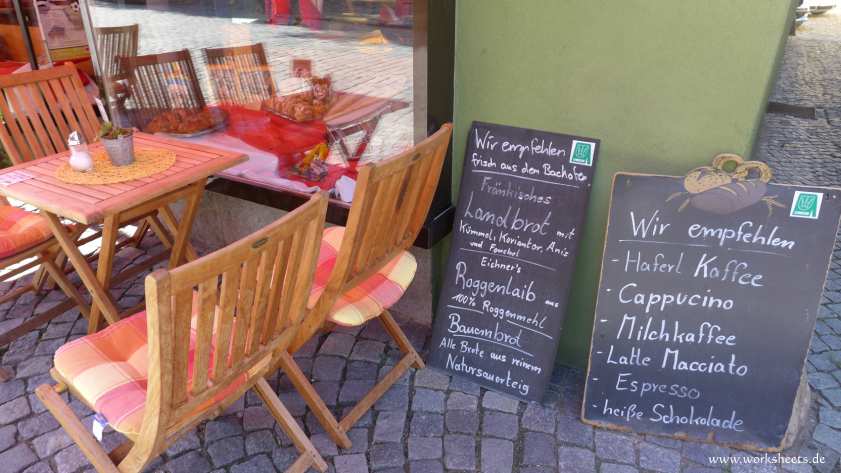 Wir empfehlen
frisch aus dem Backofen
Fränkisches
Landbrot mit
Kümmel, Koriantor, Anis
und Fenchel
Eichner's
Roggenlaib aus
100% Roggenmehl
Bauernbrot
Alle Brote aus reinem
Natursauerteig
Wir empfehlen
- Haferl Kaffee
- Cappucino
- Milchkaffee
- Latte Macciato
- Espresso
- heiße Schokolade
www.worksheets.de